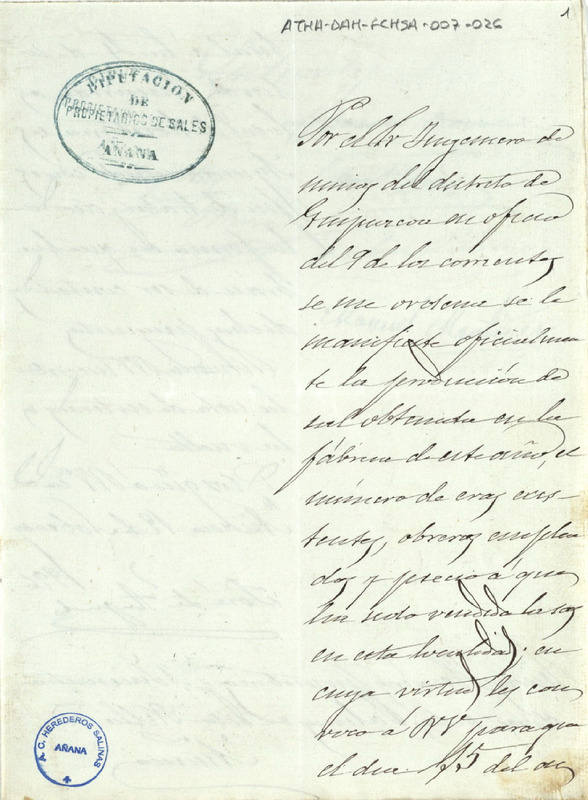 ATHA-DAH-FCHSA-007-026
1
DIPUTACION
DE
PROPIETARIOS DE SALES
AÑANA
Por el Sr Ingeniero de
minas del distrito de
Guipuzcoa en oficio
del 9 de los corrientes
se me ordena se le
manifieste oficialmen
te la produción de
sal obtenida en la
fábrica de este año, el
número de eras exis-
tentes, obreros emplea
dos y precio á que
ha sido vendida la sal
en esta localidad; en
cuya virtud les con
voco á VV para que
el dia 15 del
A. C. HEREDEROS SALINAS
AÑANA